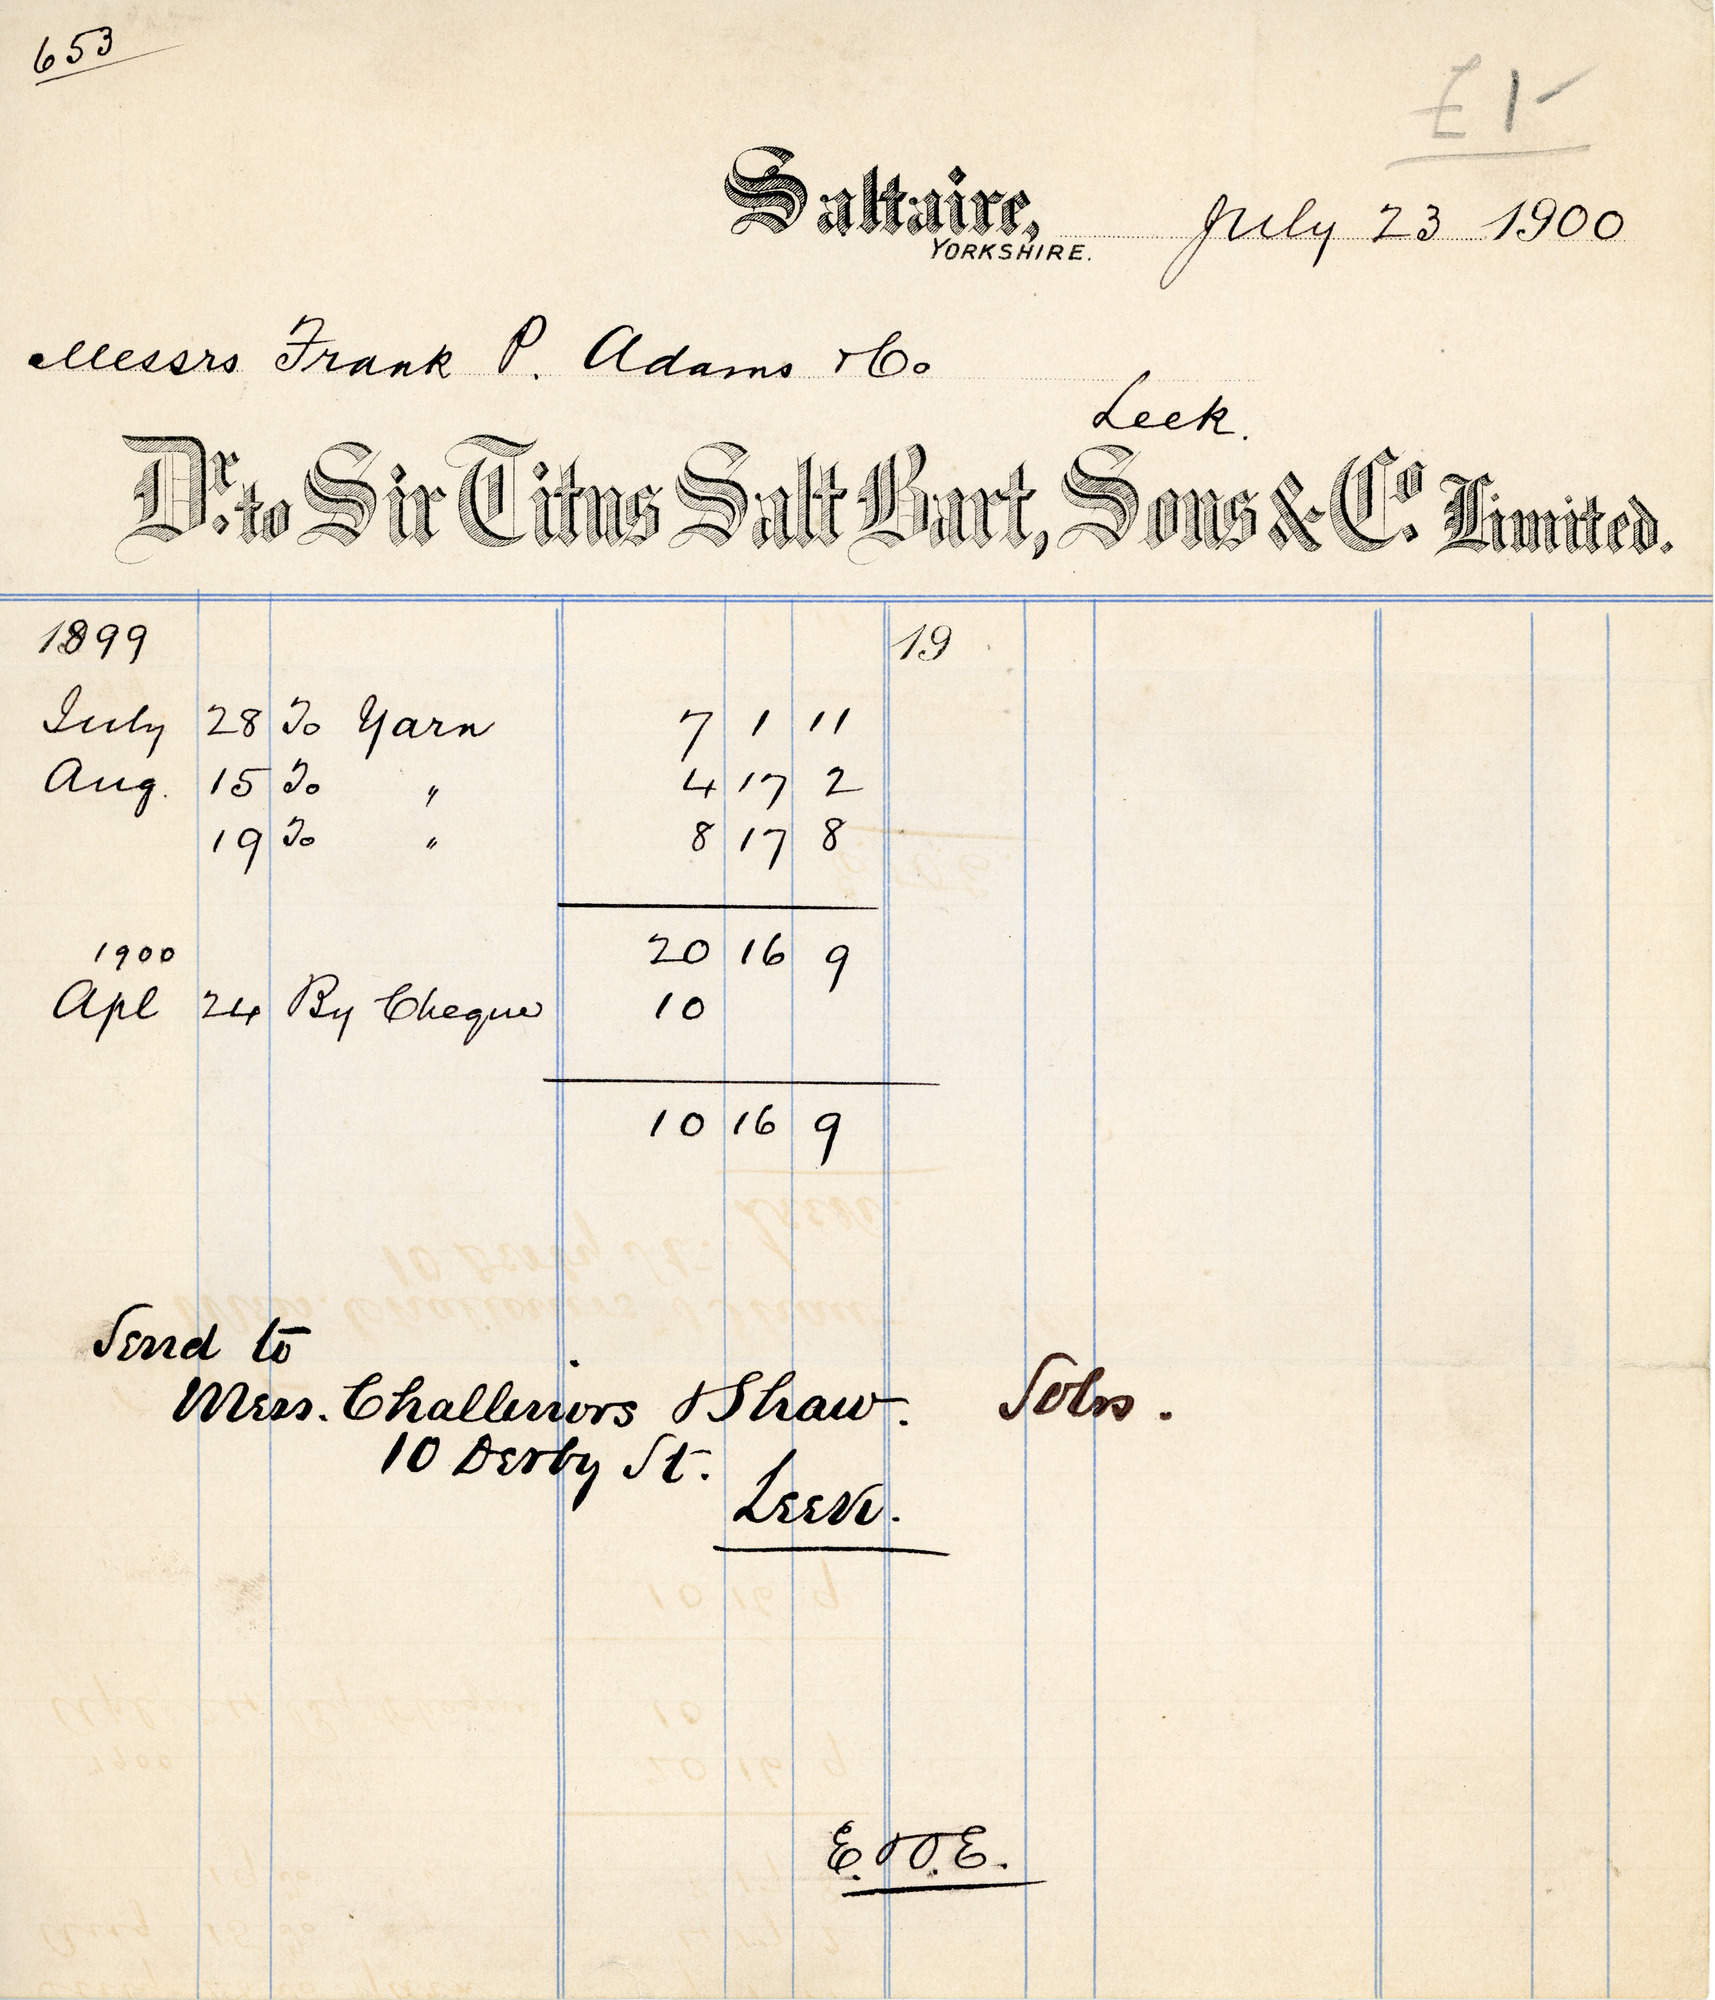 653
£1-
Saltaire, July 23 1900
YORKSHIRE.
Messrs Frank P. Adams & Co
Leek.
Dr. to Sir Titus Salt Bart, Sons & Co. Limited.
1899 19
July 28 To Yarn 7 1 11
Aug. 15 To " 4 17 2
19 To " 8 17 8
1900 20 16 9
Apl 24 By Cheque 10
10 16 9
Send to
Mess. Challinors & Shaw. Solrs.
10 Derby St.
Leek.
E. & O. E.